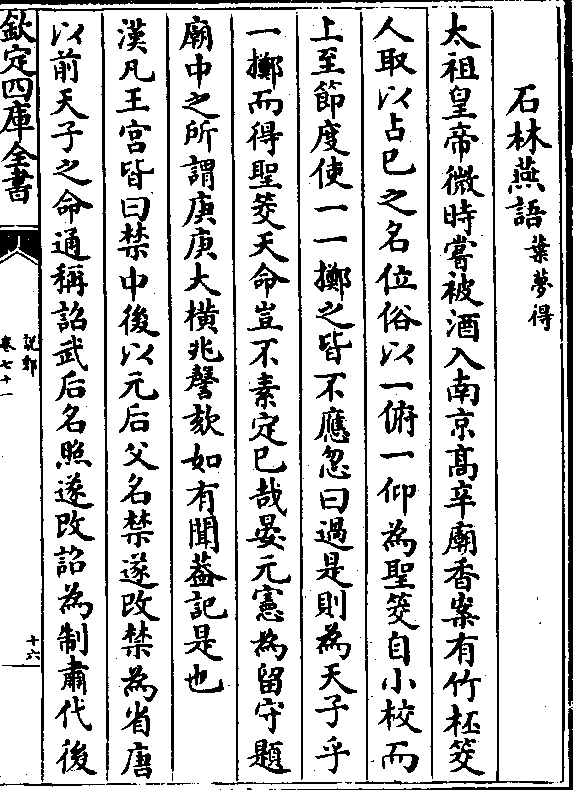 石林燕語 葉夢得
太祖皇帝微時嘗被酒入南京高辛廟香案有竹桮筊
人取以占已之名位俗以一俯一仰為聖筊自小校而
上至節度使一一擲之皆不應忽曰過是則為天子乎
一擲而得聖筊天命豈不素定已哉晏元憲為留守題
廟中之所謂庚庚大橫兆謦欬如有聞葢記是也
漢凡王宮皆曰禁中後以元后父名禁遂改禁為省唐
以前天子之命通稱詔武后名照遂改詔為制肅代後
欽定四庫全書
說郛
卷七十一
十六